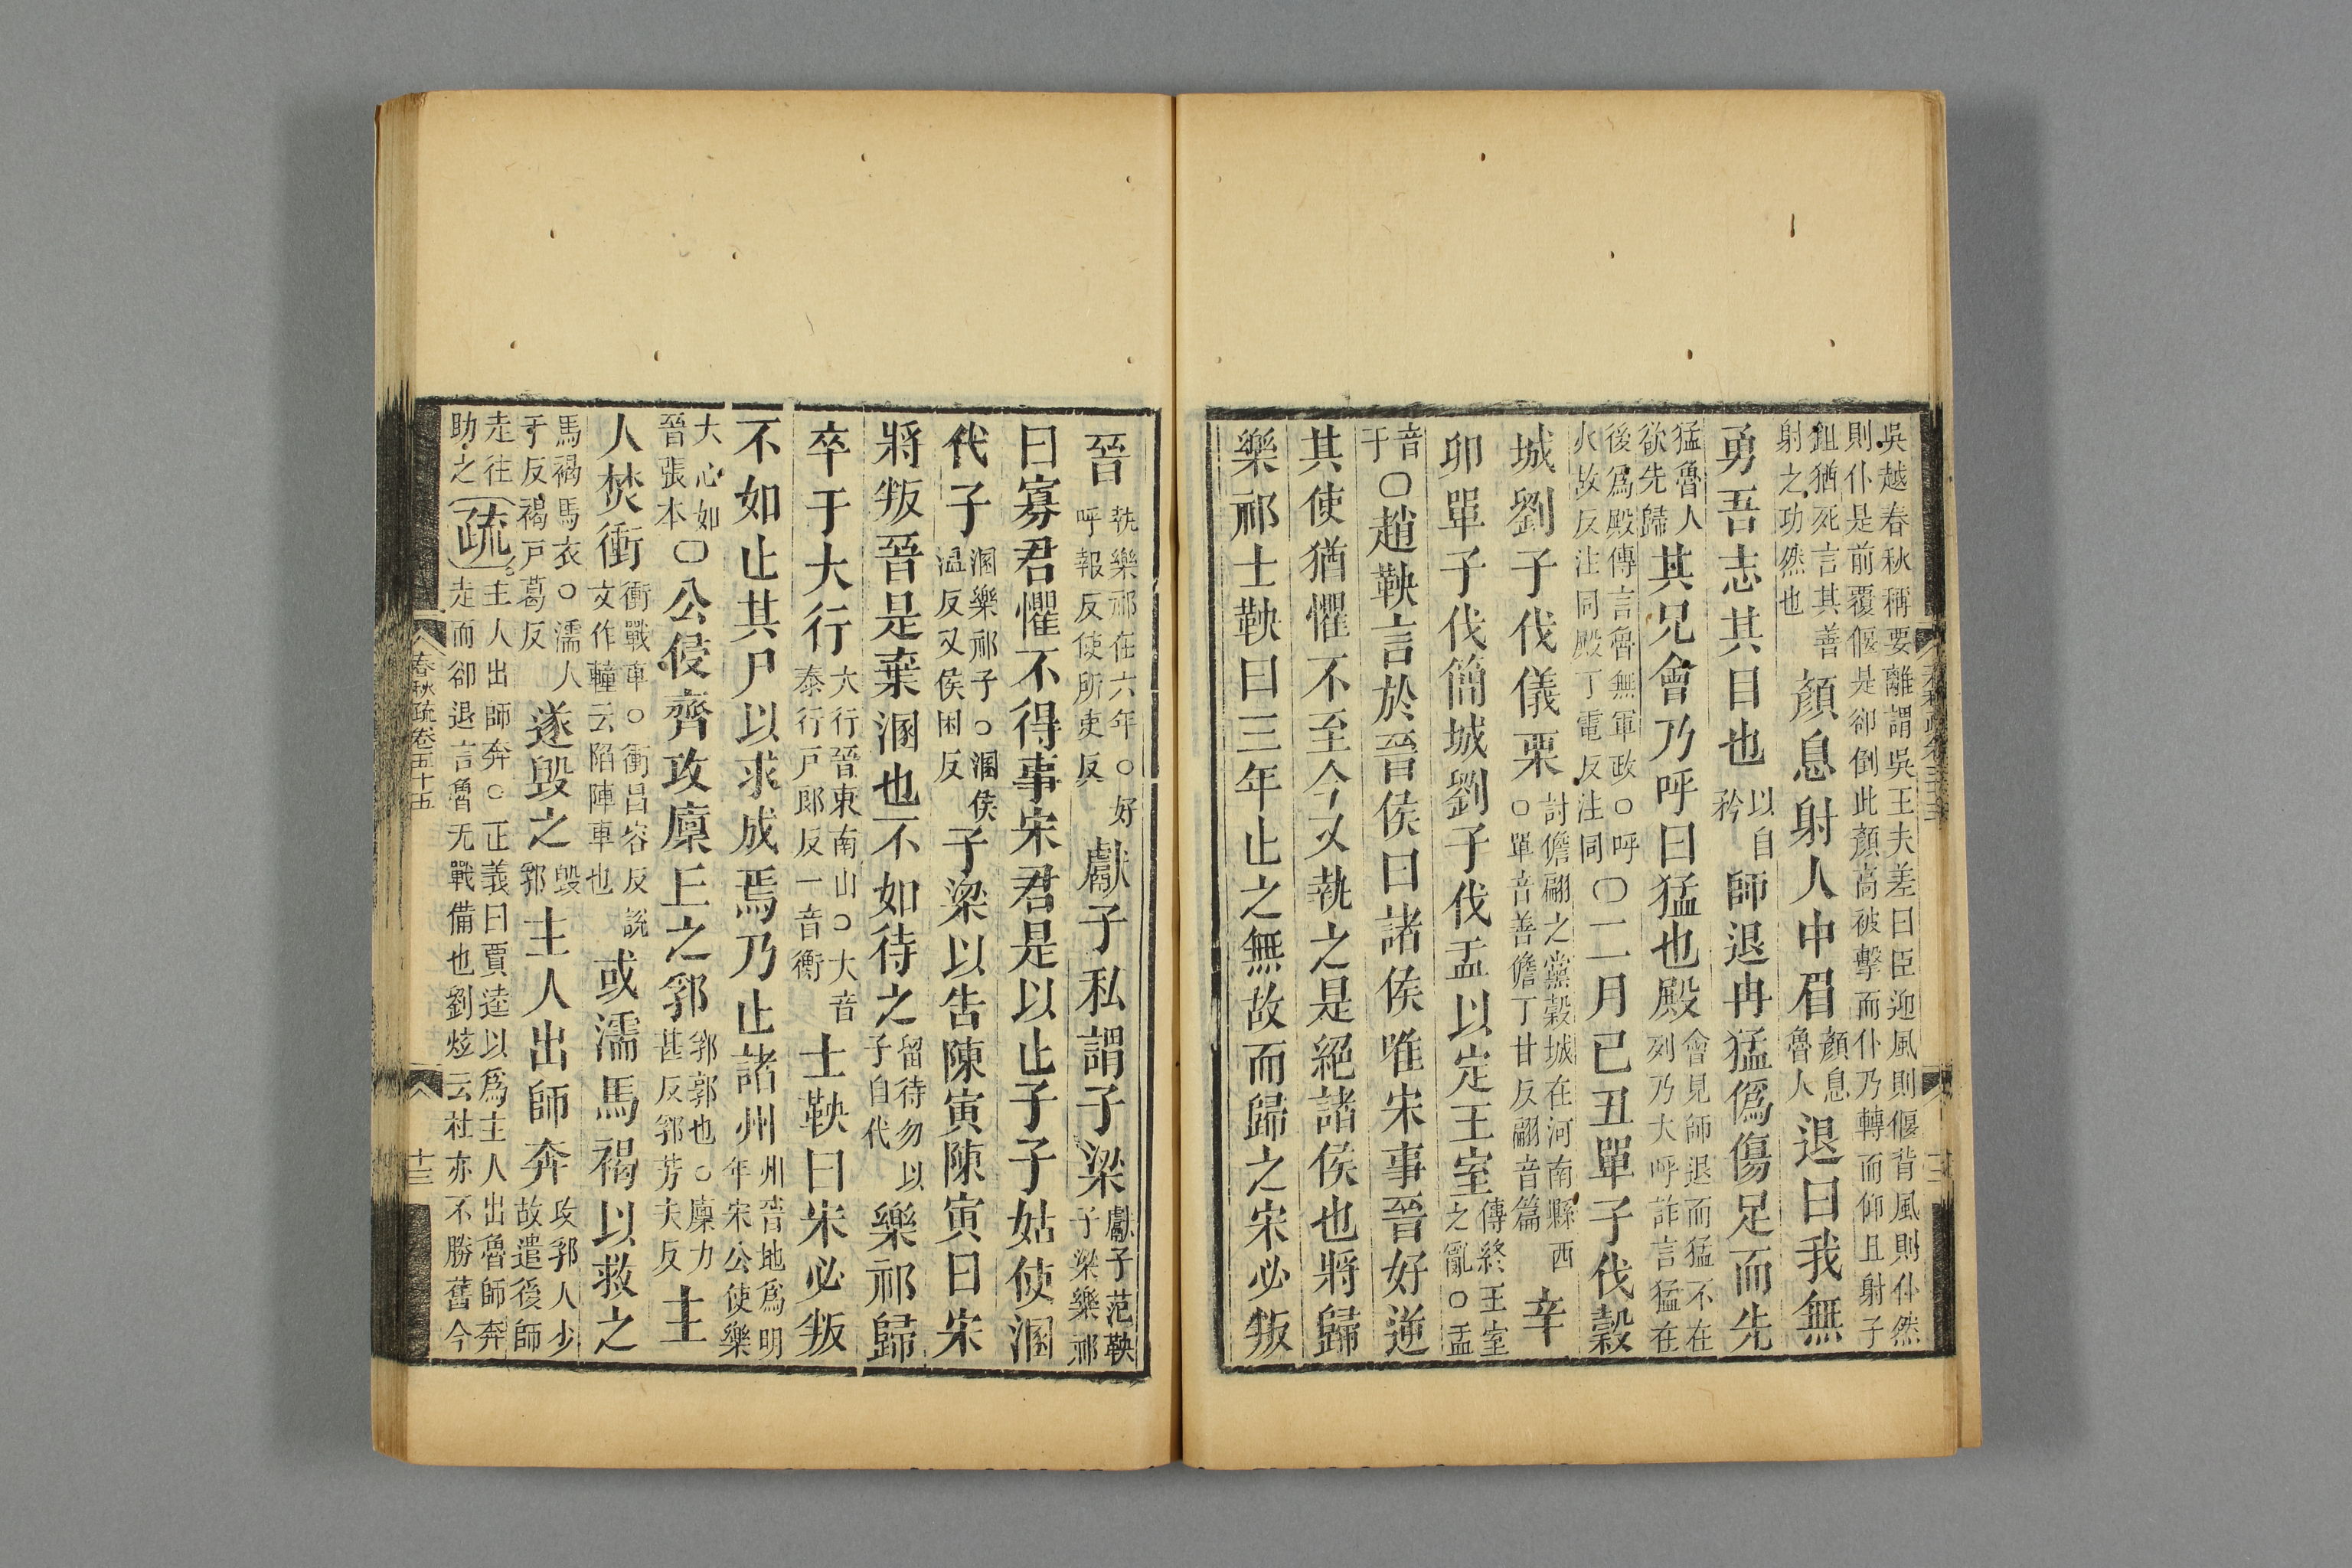 吳越春秋稱要離謂吳王夫差曰臣迎風則偃背風則仆然
則仆是前覆偃是卻倒此顏高被擊而仆乃轉而仰且射子
鉏猶死言其善射之功然也顏息射人中眉顏息魯人退曰我無
勇吾志其目也以自矜師退冉猛僞傷足而先
猛魯人欲先歸其兄會乃呼曰猛也殿會見師退而猛不在列乃大呼詐言猛在
後爲殿傳言魯無軍政○呼火故反注同殿丁電反注同○二月已丑單子伐穀
城劉子伐儀栗討儋翩之黨穀城在河南縣西○單音善儋丁甘反翩音篇辛
卯單子伐簡城劉子伐盂以定王室傳終王室之亂○盂
音于○趙鞅言於晉侯曰諸侯唯宋事晉好逆
其使猶懼不至今又執之是絕諸侯也將歸
樂祁士鞅曰三年止之無故而歸之宋必叛
晉執樂祁在六年○好呼報反使所吏反獻子私謂子梁獻子范鞅子梁樂祁
曰寡君懼不得事宋君是以止子子姑使溷
代子溷樂祁子○溷侯温反又侯困反子梁以告陳寅陳寅曰宋
將叛晉是棄溷也不如待之留待勿以子自代樂祁歸
卒于大行大行晉東南山○大音泰行戸郎反一音衡士鞅曰宋必叛
不如止其尸以求成焉乃止諸州州晉地爲明年宋公使樂
大心如晉張本○公侵齊攻廩丘之郛郛郭也○廩力甚反郛芳夫反主
人焚衝衝戰車○衝昌容反說文作䡴云陷陣車也或濡馬褐以救之
馬褐馬衣○濡人于反褐戸葛反遂毀之毀郛主人出師奔攻郛人少故遣後師
走往助之疏主人出師奔○正義曰賈逵以爲主人出魯師奔
走而卻退言魯无戰備也劉炫云杜亦不勝舊今
春秋疏卷五十五
十三